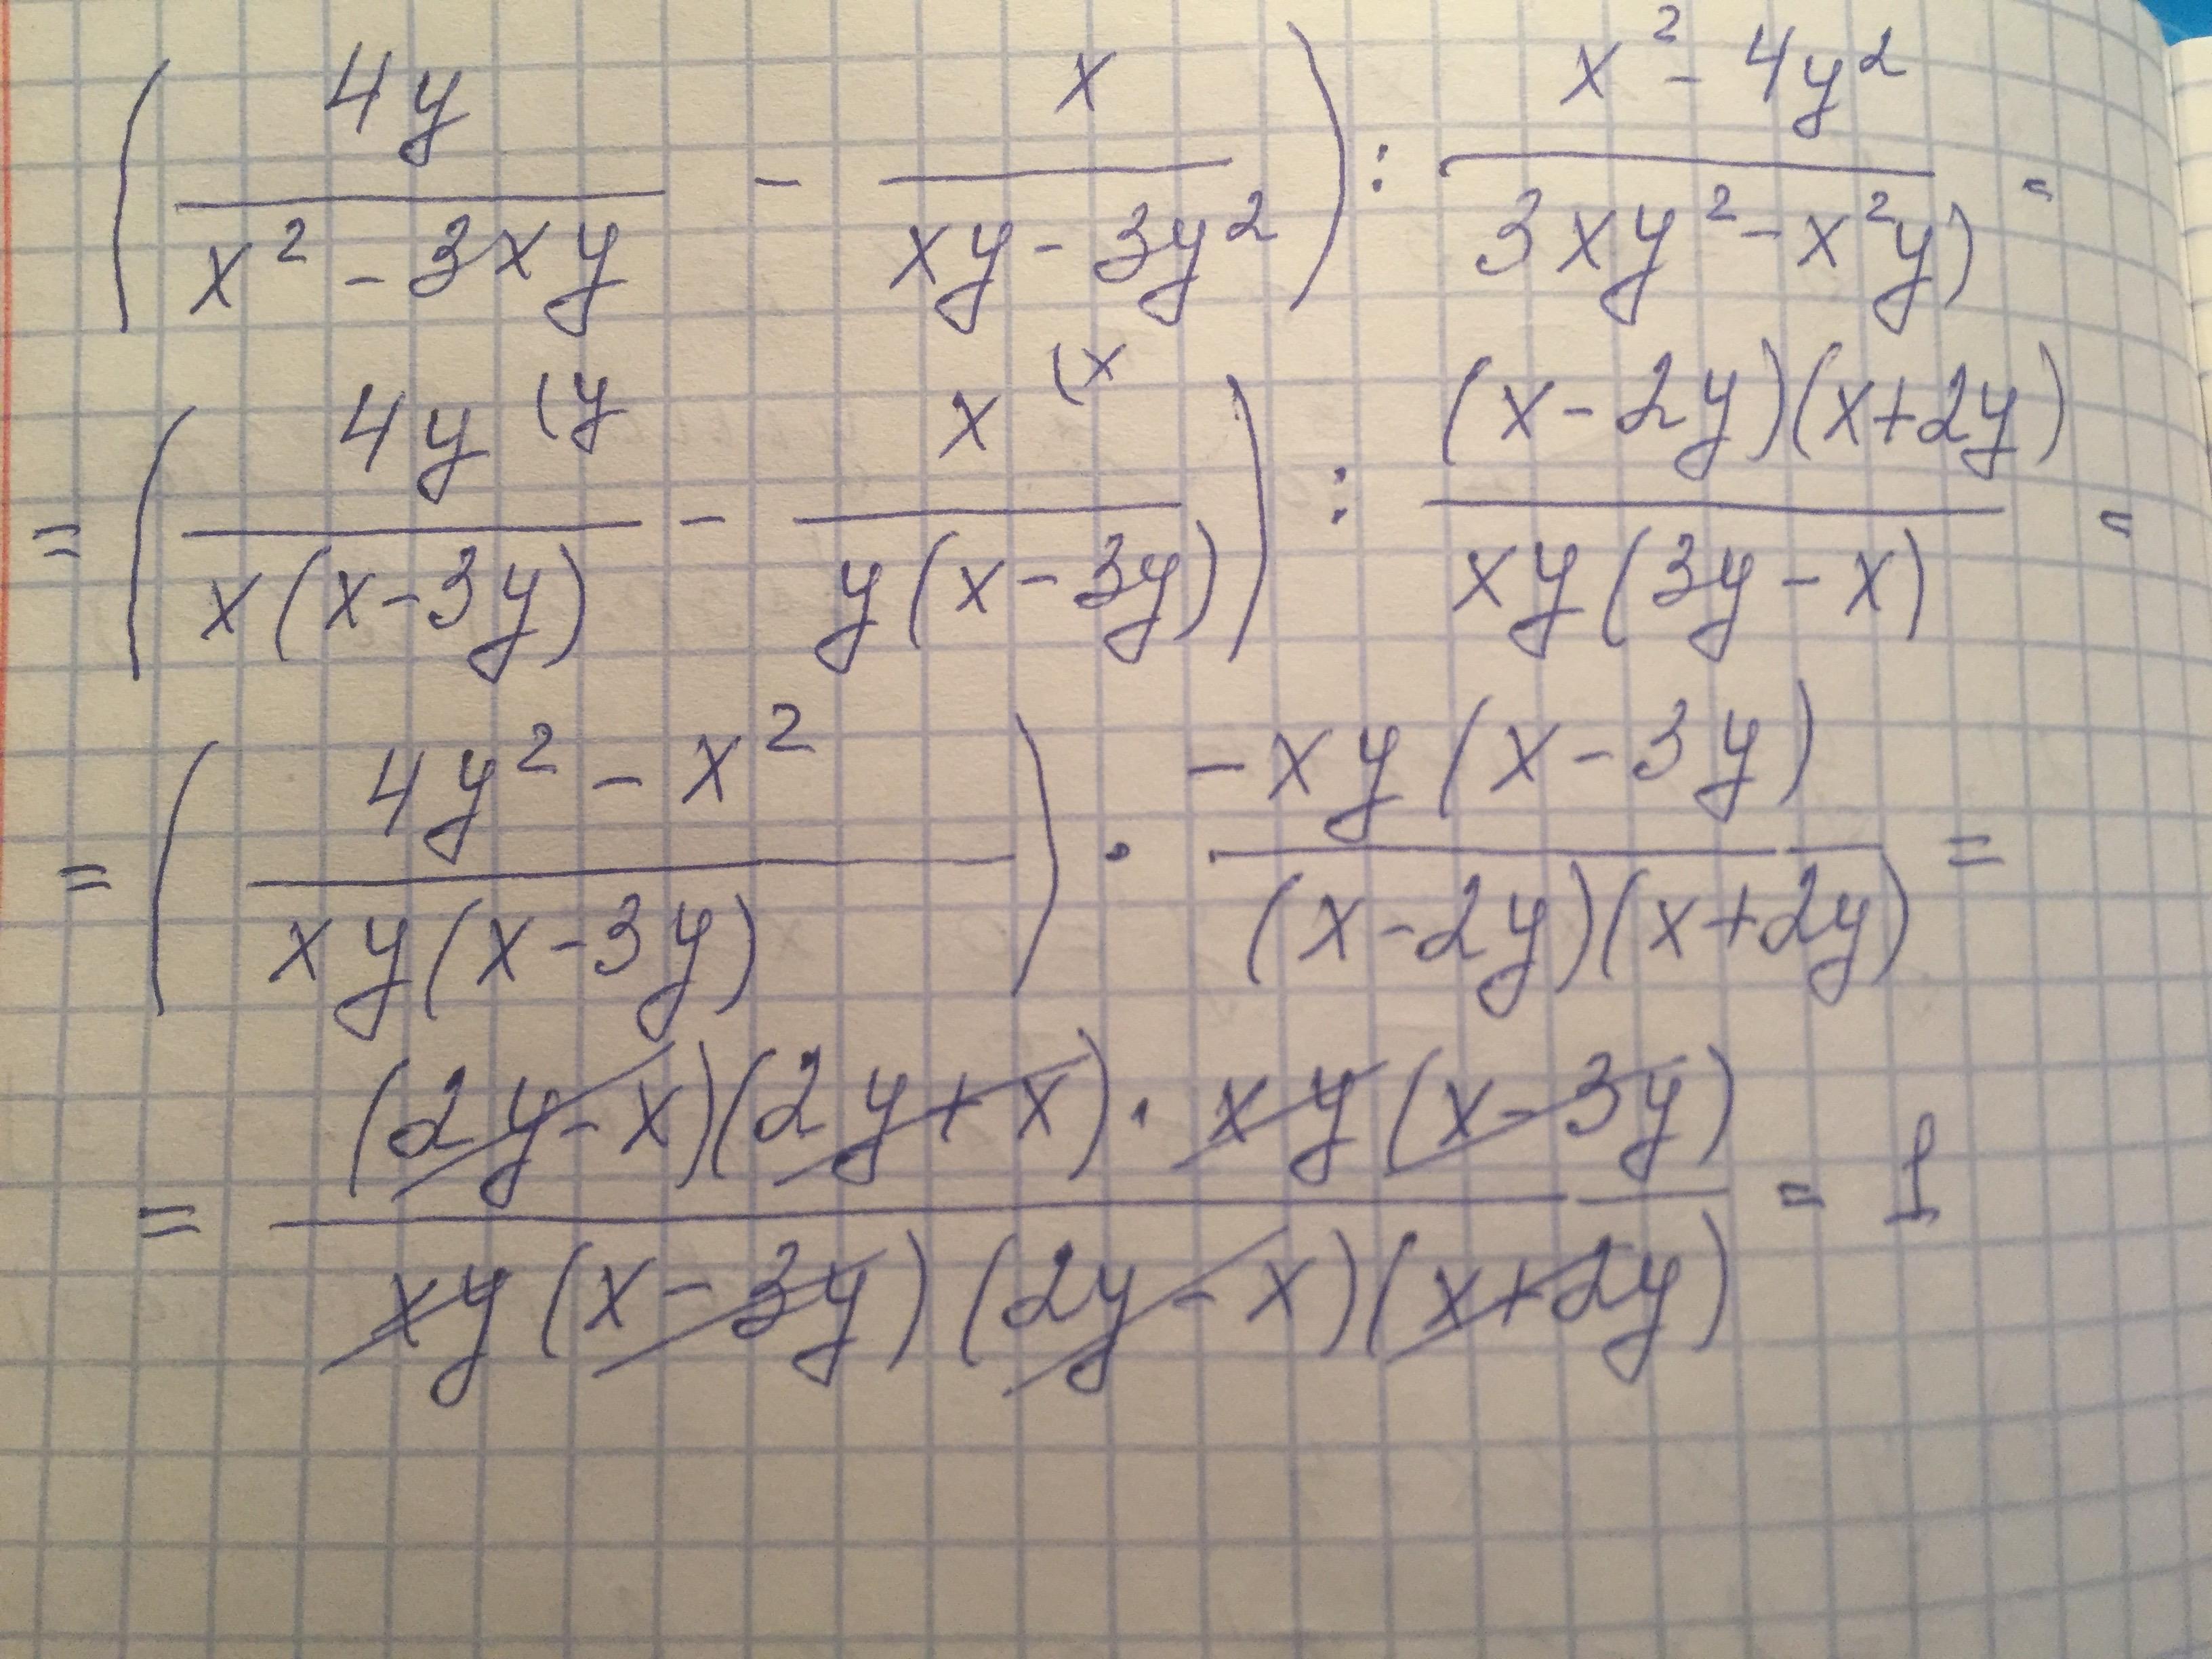 (4y/(x² - 3xy) - x/(xy - 3y²)) : (x² - 4y²)/(3xy² - x²y)) =
= (4y (y/(x(x-3y)) - x (x/(y(x-3y))) : (x-2y)(x+2y)/(xy(3y-x)) =
= ((4y² - x²)/(xy(x-3y))) · -xy(x-3y)/((x-2y)(x+2y)) =
= (2y-x)(2y+x) · xy(x-3y)/(xy(x-3y)(2y-x)(x+2y)) = 1